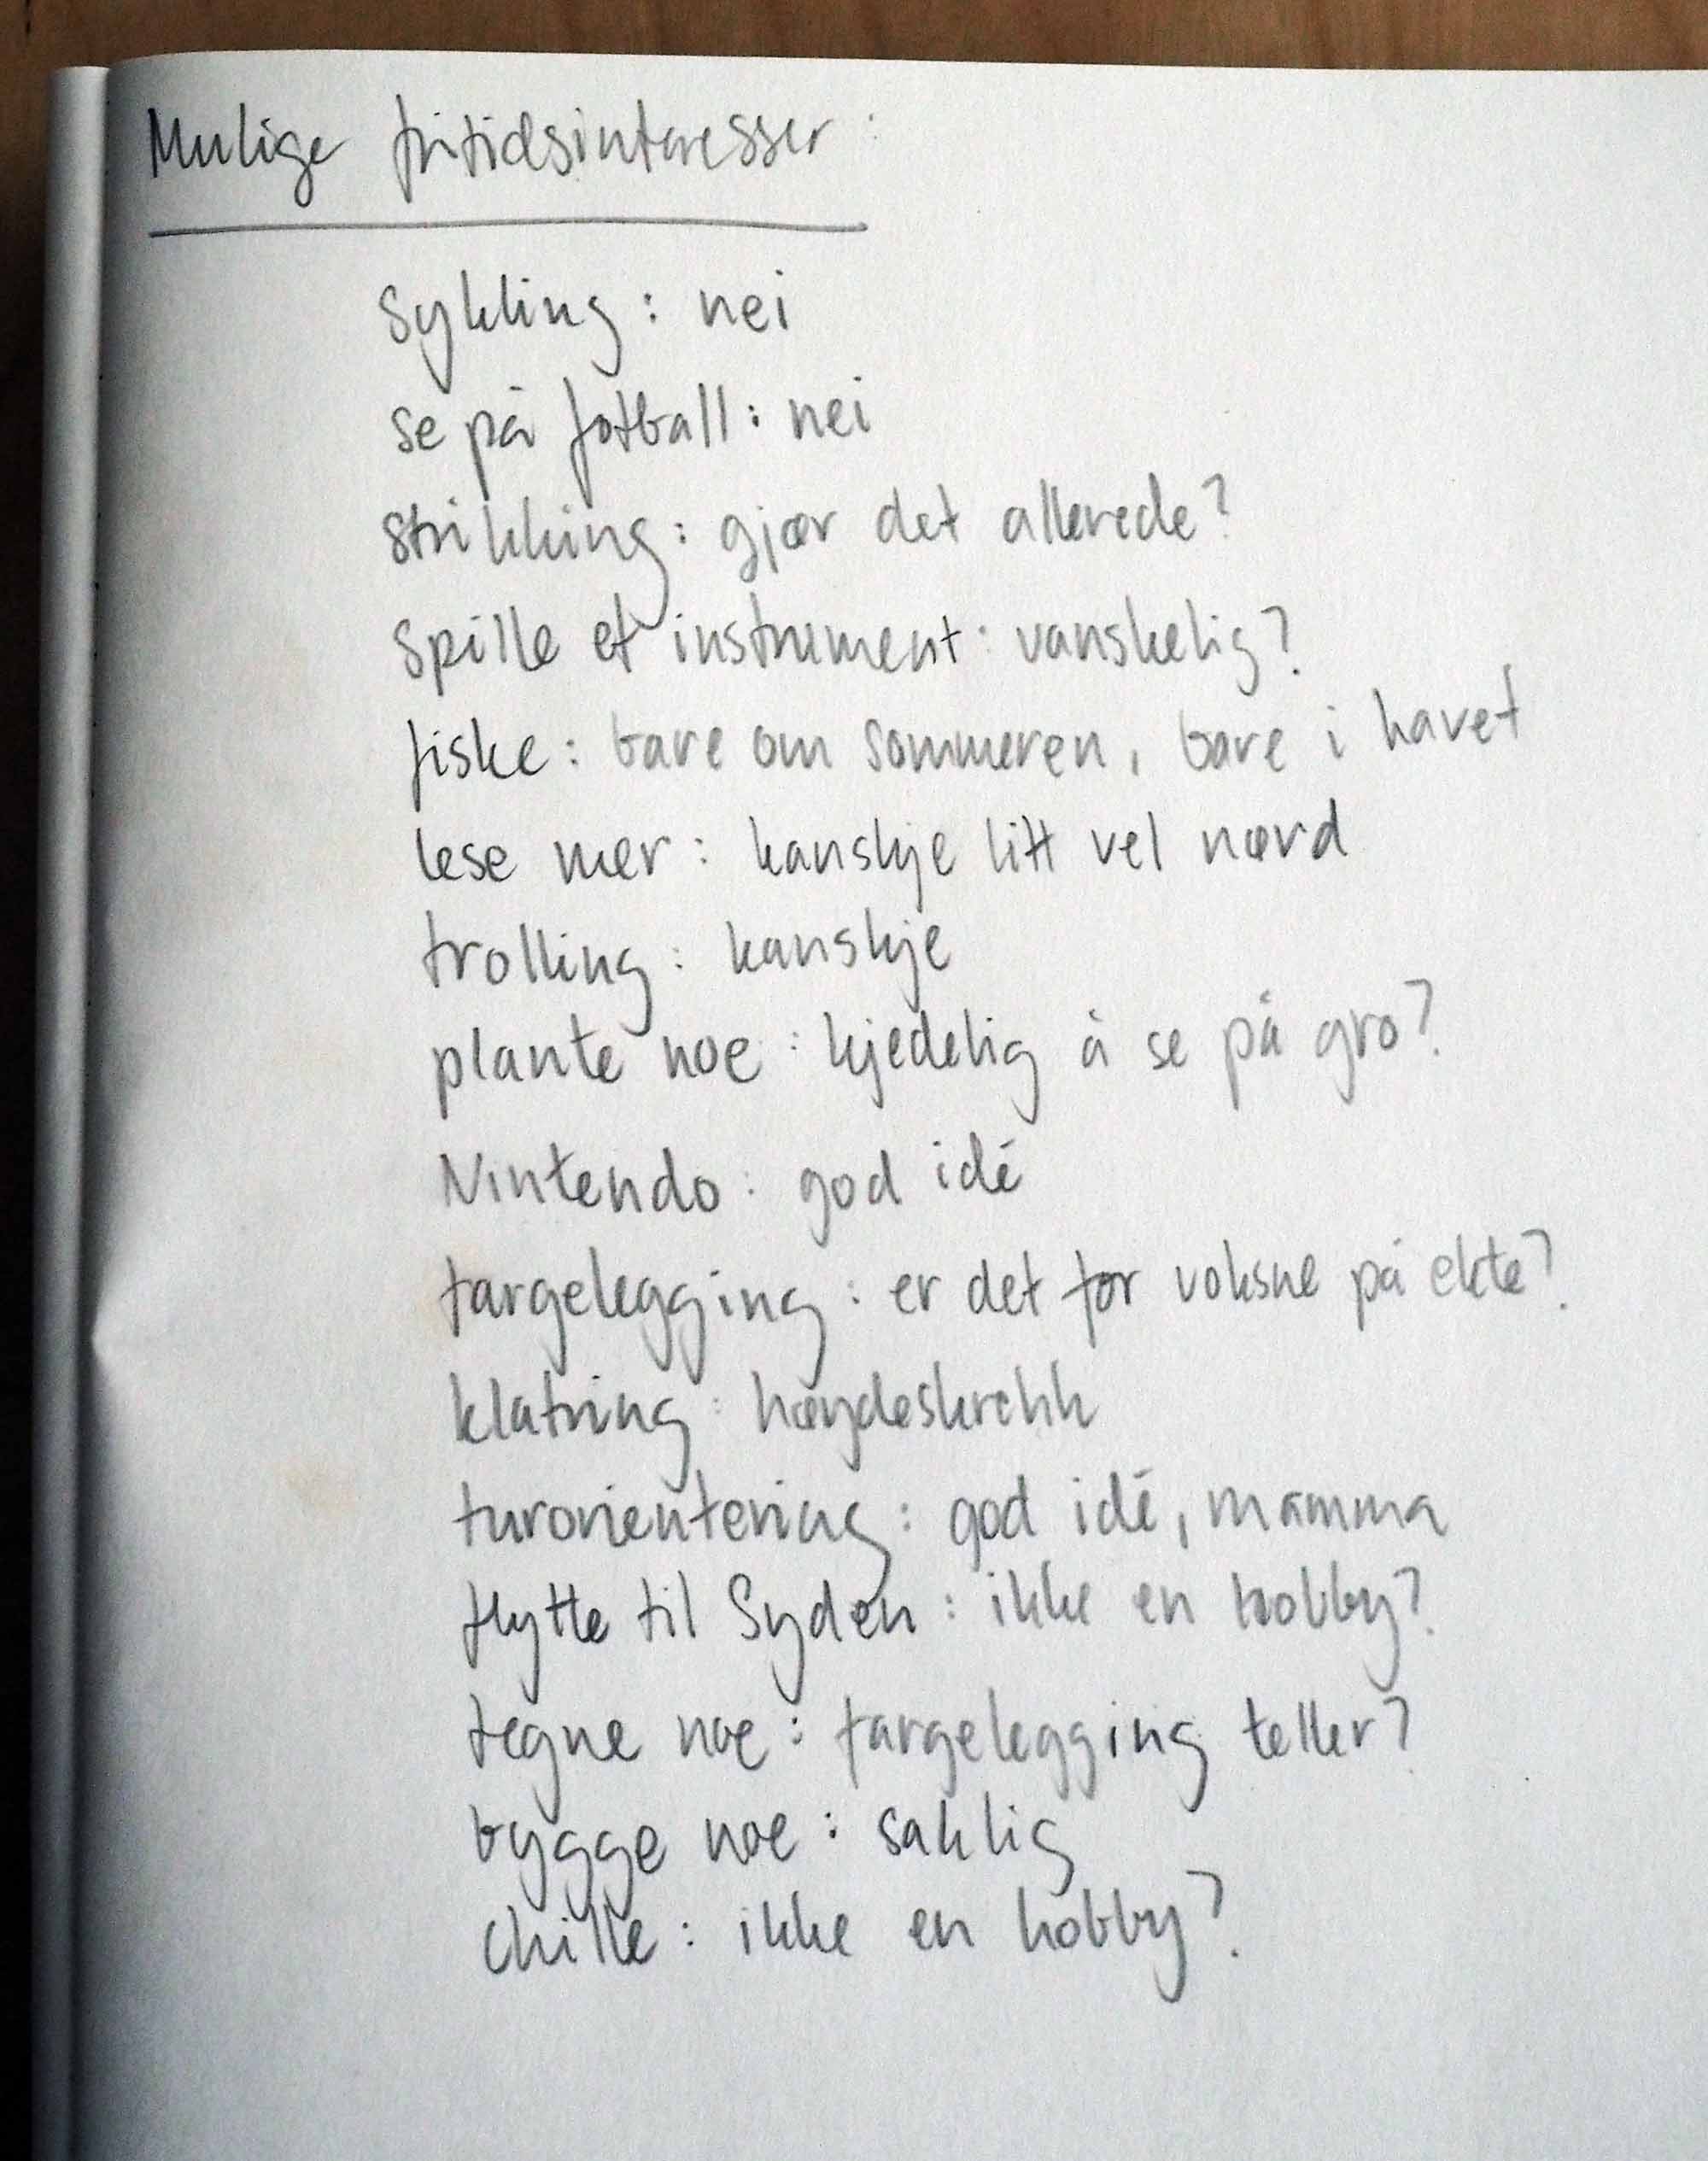 Mulige fritidsinteresser:
Sykling: nei
se på fotball: nei
strikking: gjør det allerede?
Spille et instrument: vanskelig?
fiske: bare om sommeren, bare i havet
lese mer: kanskje litt vel nerd
trolling: kanskje
plante noe: kjedelig å se på gro?
Nintendo: god idé
fargelegging: er det for voksne på ekte?
klatring: høydeskrekk
turorientering: god idé, mamma
flytte til Syden: ikke en hobby?
tegne noe: fargelegging teller?
bygge noe: saklig
chille: ikke en hobby?